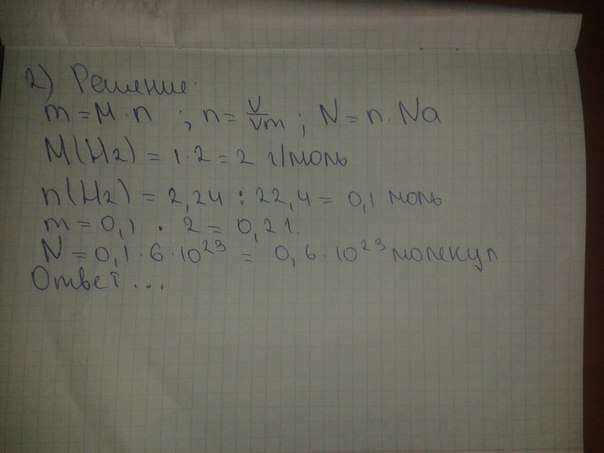 2) Решение.
m=M·n ; n=V/Vm ; N=n·Na
M(H2)=1·2=2 г/моль
n(H2)=2,24:22,4=0,1 моль
m=0,1·2=0,2г.
N=0,1·6·10²³=0,6·10²³ молекул
Ответ...